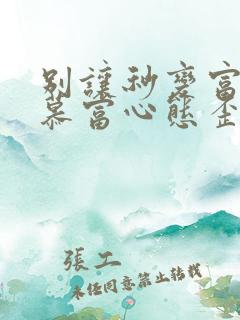 别讓秒變富
慕富心態歪
張工
未经同意禁止转载